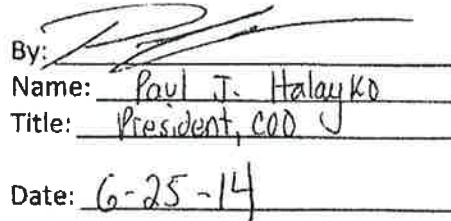 By:
Name: Paul J. Halayko
Title: President, COO
Date: 6-25-14